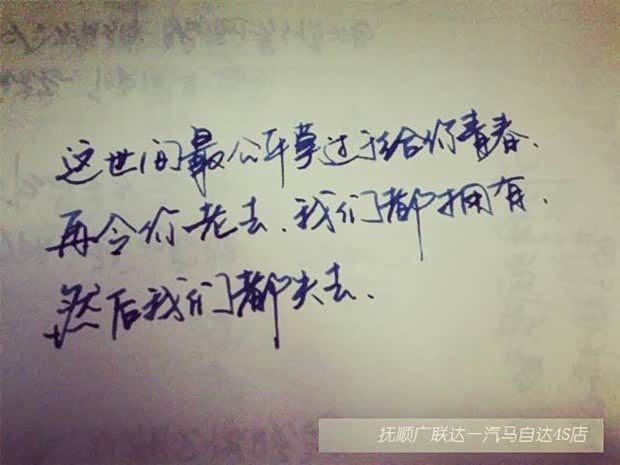 这世间最公平莫过于给你青春、
再令你老去、我们都拥有、
然后我们都失去、
抚顺广联达一汽马自达4S店